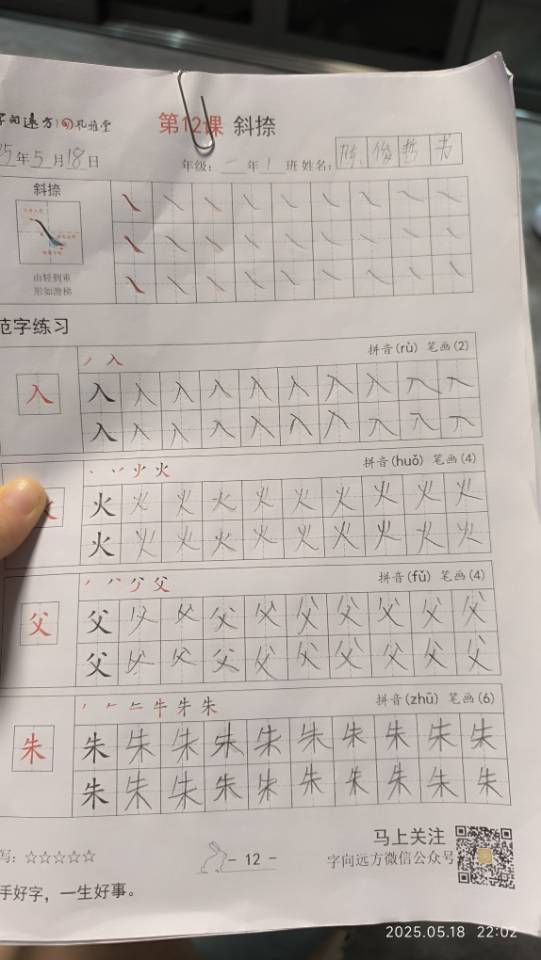 字向远方 孔雅堂
第12课 斜捺
25年5月18日
年级：一年1班 姓名：
斜捺
由轻到重
形如滑梯
范字练习
丿 入 拼音(rù) 笔画(2)
入 入 入 入 入 入 入 入 入 入 入
入 入 入 入 入 入 入 入 入 入
火 火 拼音(huǒ) 笔画(4)
火 火 火 火 火 火 火 火 火 火
火 火 火 火 火 火 火 火 火 火
父 拼音(fǔ) 笔画(4)
父 父 父 父 父 父 父 父 父 父 父
父 父 父 父 父 父 父 父 父 父
牛 朱 朱 拼音(zhū) 笔画(6)
朱 朱 朱 朱 朱 朱 朱 朱 朱 朱 朱
朱 朱 朱 朱 朱 朱 朱 朱 朱 朱
写：☆☆☆☆☆
- 12 -
马上关注
字向远方微信公众号
手好字，一生好事。
2025.05.18 22:02